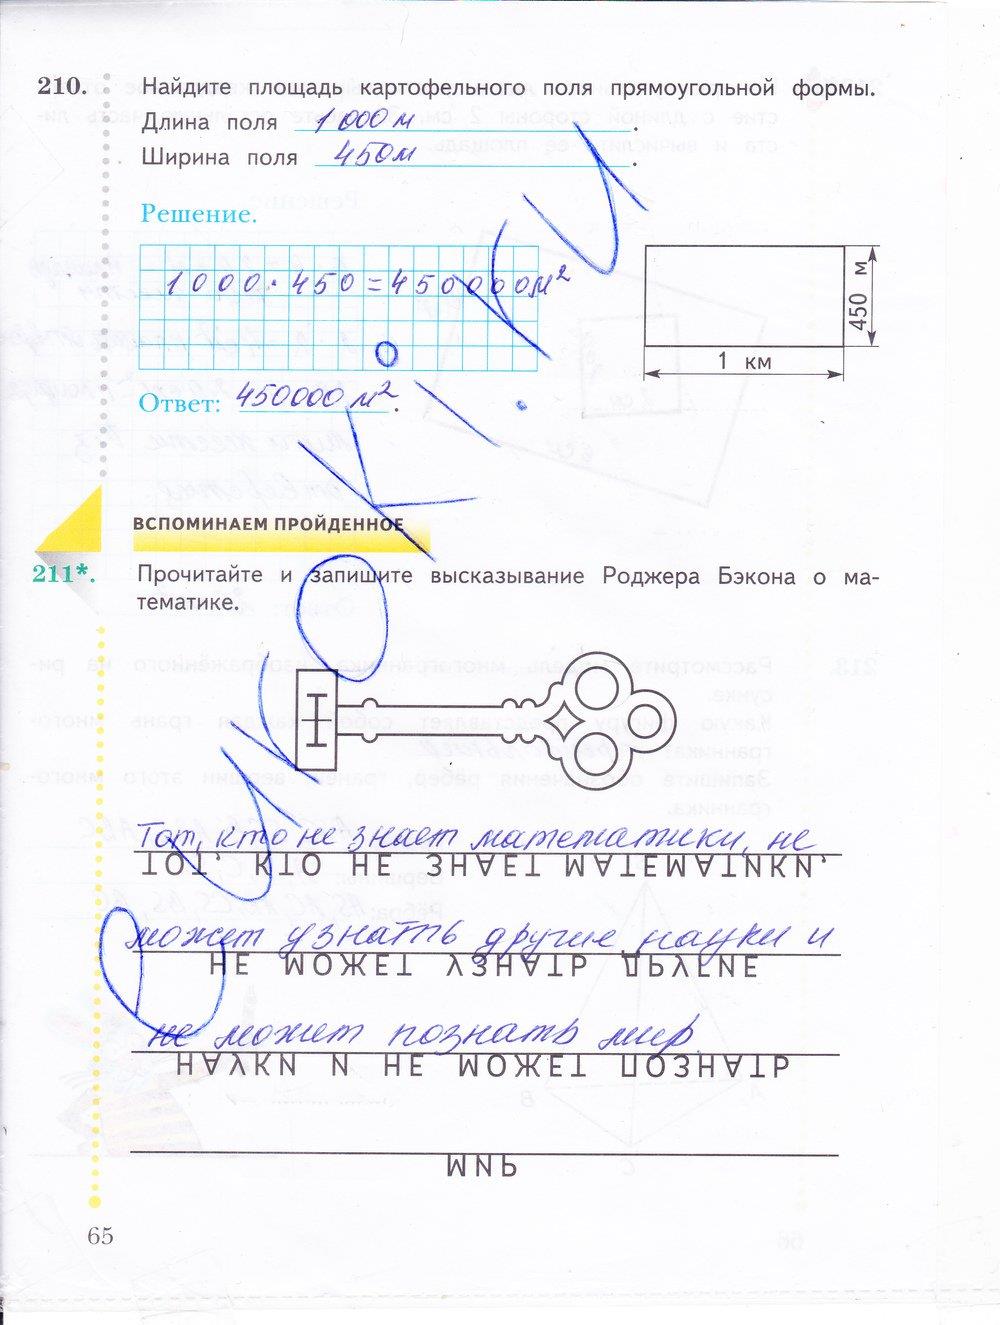 210. Найдите площадь картофельного поля прямоугольной формы.
Длина поля 1000м.
Ширина поля 450м.
Решение.
1000·450=450000м²
450 м
1 км
Ответ: 450000м².
ВСПОМИНАЕМ ПРОЙДЕННОЕ
211*. Прочитайте и запишите высказывание Роджера Бэкона о ма-
тематике.
Тот, кто не знает математики, не
ТОТ, КТО НЕ ЗНАЕТ МАТЕМАТИКИ,
может узнать другие науки и
НЕ МОЖЕТ УЗНАТЬ ДРУГИЕ
не может познать мир
НАУКИ И НЕ МОЖЕТ ПОЗНАТЬ
МИР
65